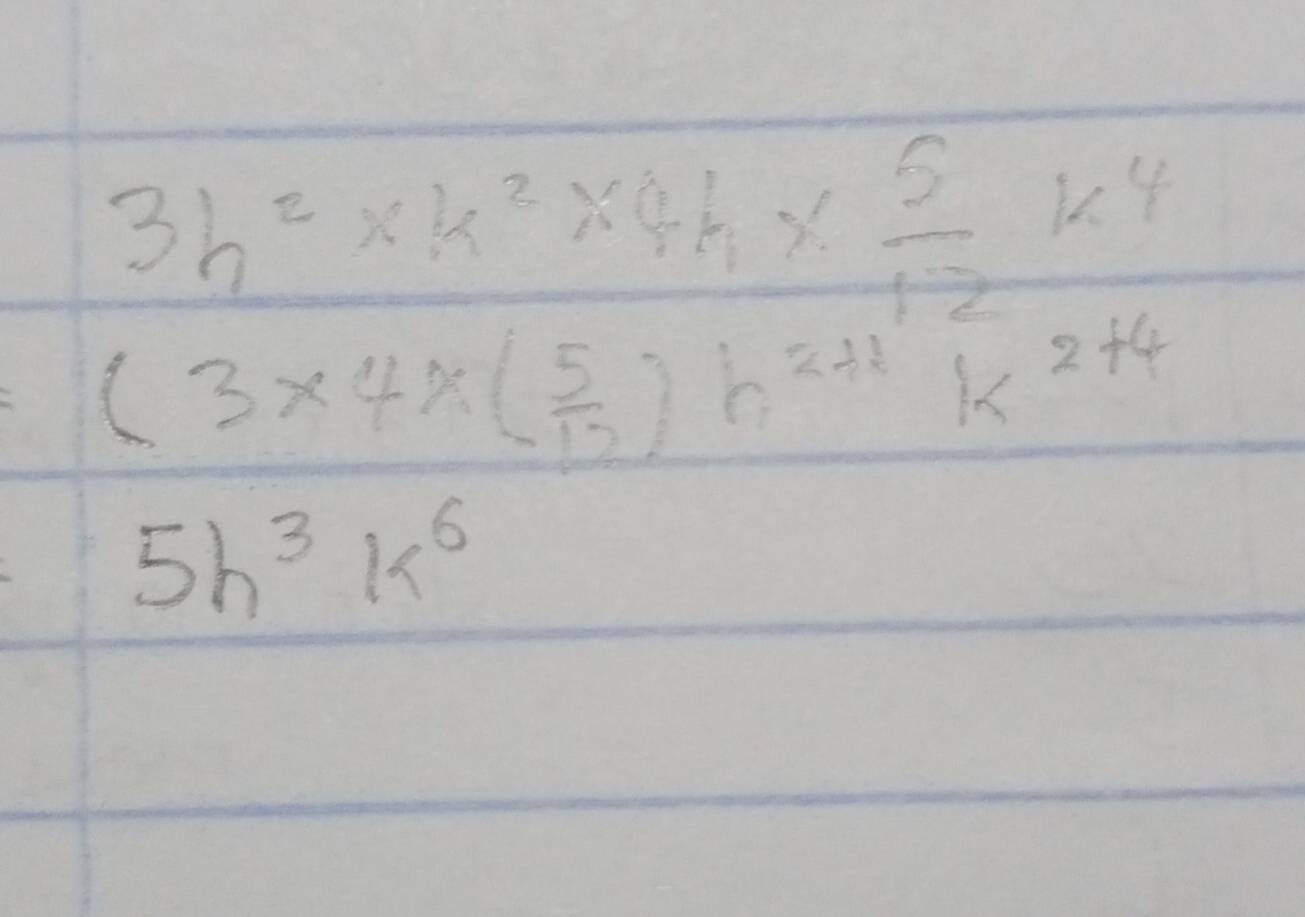 3h² × k² × 4h × 5/12 k⁴
= (3 × 4 × (5/12) h²⁺¹ k²⁺⁴
= 5h³ k⁶